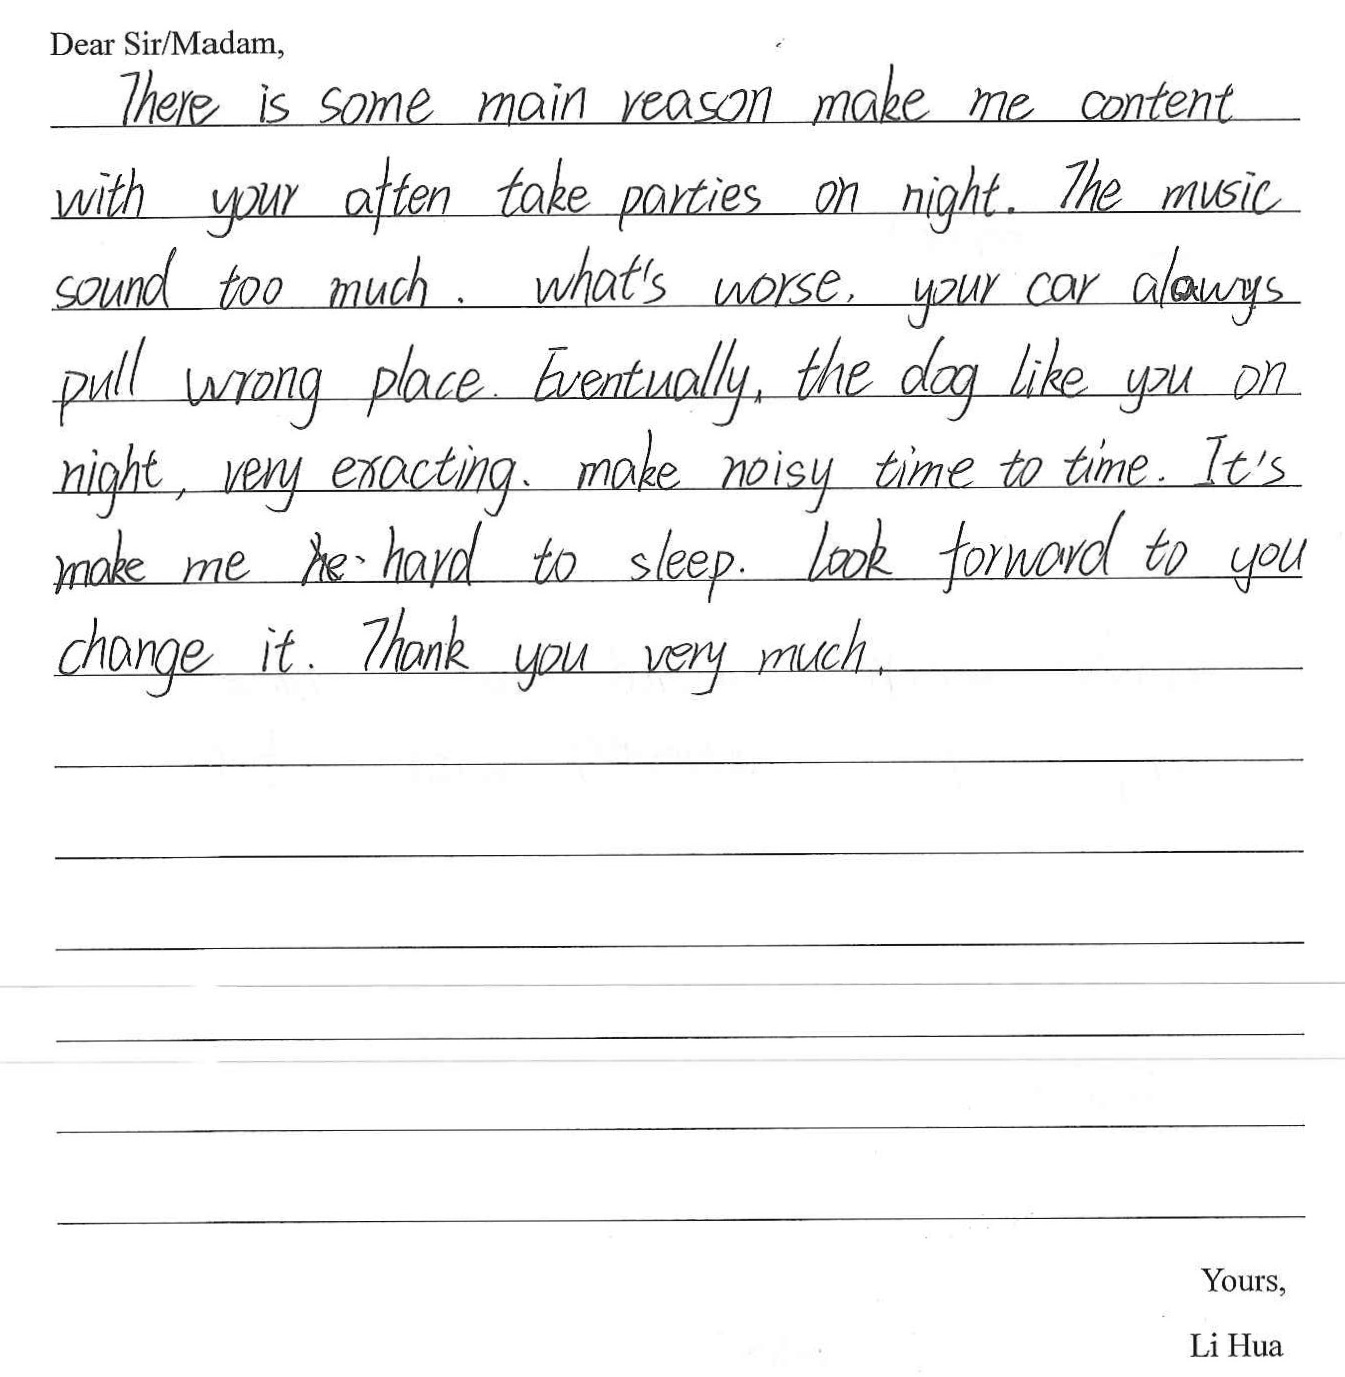 Dear Sir/Madam,
There is some main reason make me content
with your aften take parties on night. The music
sound too much. what's worse, your car alawys
pull wrong place. Eventually, the dog like you on
night, very exacting. make noisy time to time. It's
make me hard to sleep. Look forward to you
change it. Thank you very much.
Yours,
Li Hua